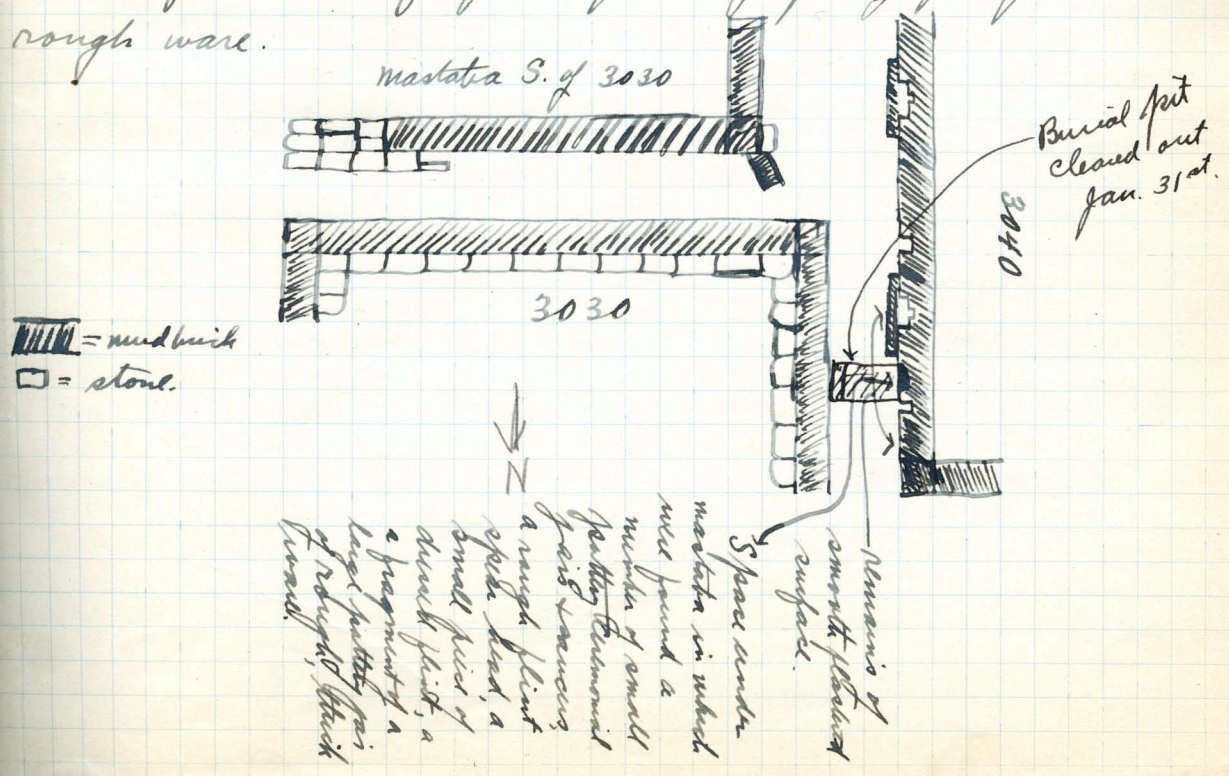 rough ware.
mastaba S. of 3030
Burial pit
cleared out
Jan. 31st.
3040
3030
= mud brick
= stone.
N
remains of
smooth plastered
surface.
Space under
mastaba in which
were found a
number of small
pottery ceremonial
jars & saucers,
a rough flint
spear head, a
small piece of
flint, a
a fragment of a
large pottery jar
of rough, thick
ware.